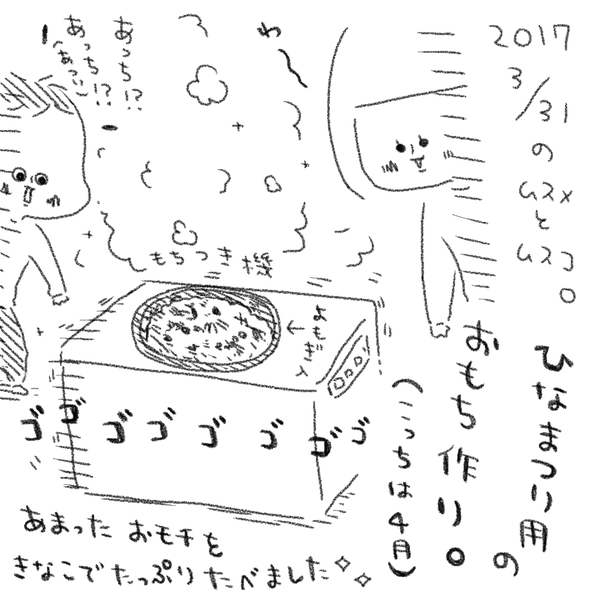 2017
3/31
の
ムスメ
と
ムスコ。
ひなまつり用の
おもち作り。
(こっちは4月)
わ
あっち!?
あっち!?
(あつい)
もちつき機
よもぎ
ゴゴゴゴゴゴゴゴ
あまった おモチを
きなこで たっぷり たべました